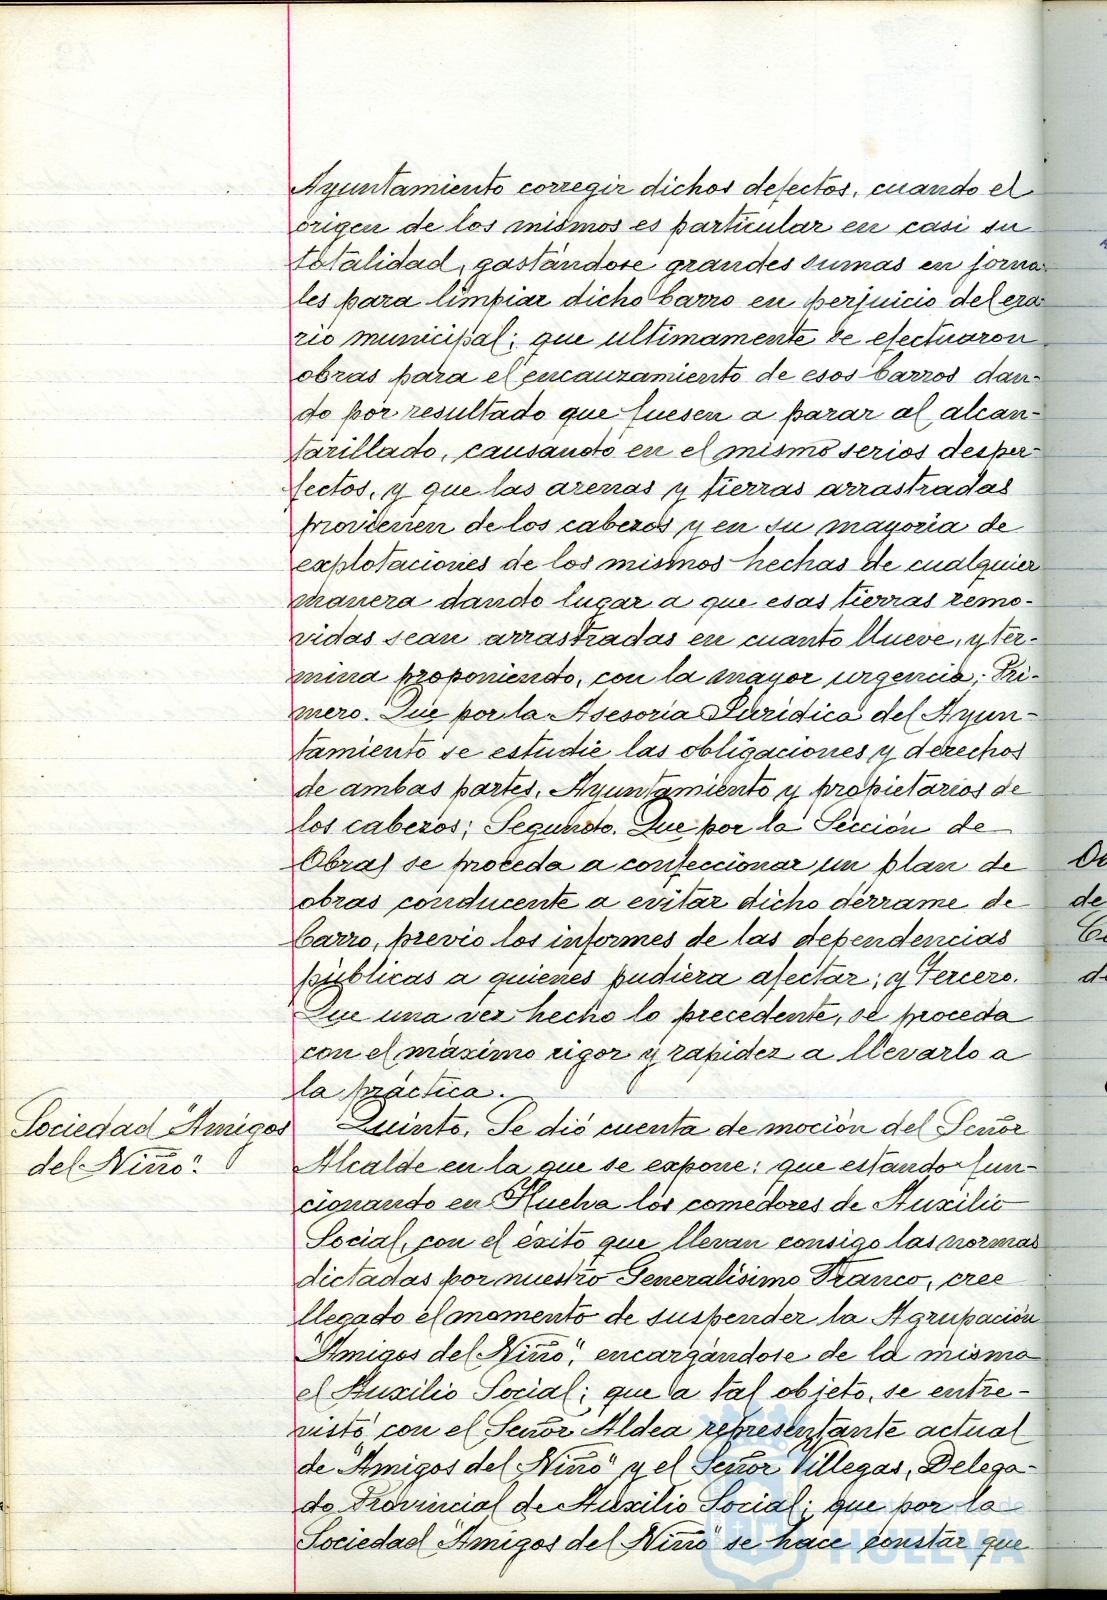 Ayuntamiento corregir dichos defectos, cuando el
origen de los mismos es particular en casi su
totalidad, gastándose grandes sumas en jorna-
les para limpiar dicho barro en perjuicio del era-
rio municipal; que ultimamente se efectuaron
obras para el encauzamiento de esos barros dan-
do por resultado que fuesen a parar al alcan-
tarillado, causando en el mismo serios desper-
fectos, y que las arenas y tierras arrastradas
provienen de los cabezos y en su mayoria de
explotaciones de los mismos hechas de cualquier
manera dando lugar a que esas tierras remo-
vidas sean arrastradas en cuanto llueve, y ter-
mina proponiendo, con la mayor urgencia; Pri-
mero. Que por la Asesoria Juridica del Ayun-
tamiento se estudie las obligaciones y derechos
de ambas partes, Ayuntamiento y propietarios de
los cabezos; Segundo. Que por la Sección de
Obras se proceda a confeccionar un plan de
obras conducente a evitar dicho derrame de
barro, previo los informes de las dependencias
públicas a quienes pudiera afectar; y Tercero.
Que una vez hecho lo precedente, se proceda
con el máximo rigor y rapidez a llevarlo a
la práctica.
Sociedad "Amigos
del Niño".
Quinto. Se dió cuenta de moción del Señor
Alcalde en la que se expone: que estando fun-
cionando en Huelva los comedores de Auxilio
Social, con el éxito que llevan consigo las normas
dictadas por nuestro Generalísimo Franco, cree
llegado el momento de suspender la Agrupación
"Amigos del Niño", encargándose de la misma
el Auxilio Social; que a tal objeto, se entre-
vistó con el Señor Aldea representante actual
de "Amigos del Niño" y el Señor Villegas, Delega-
do Provincial de Auxilio Social; que por la
Sociedad "Amigos del Niño" se hace constar que
HUELVA